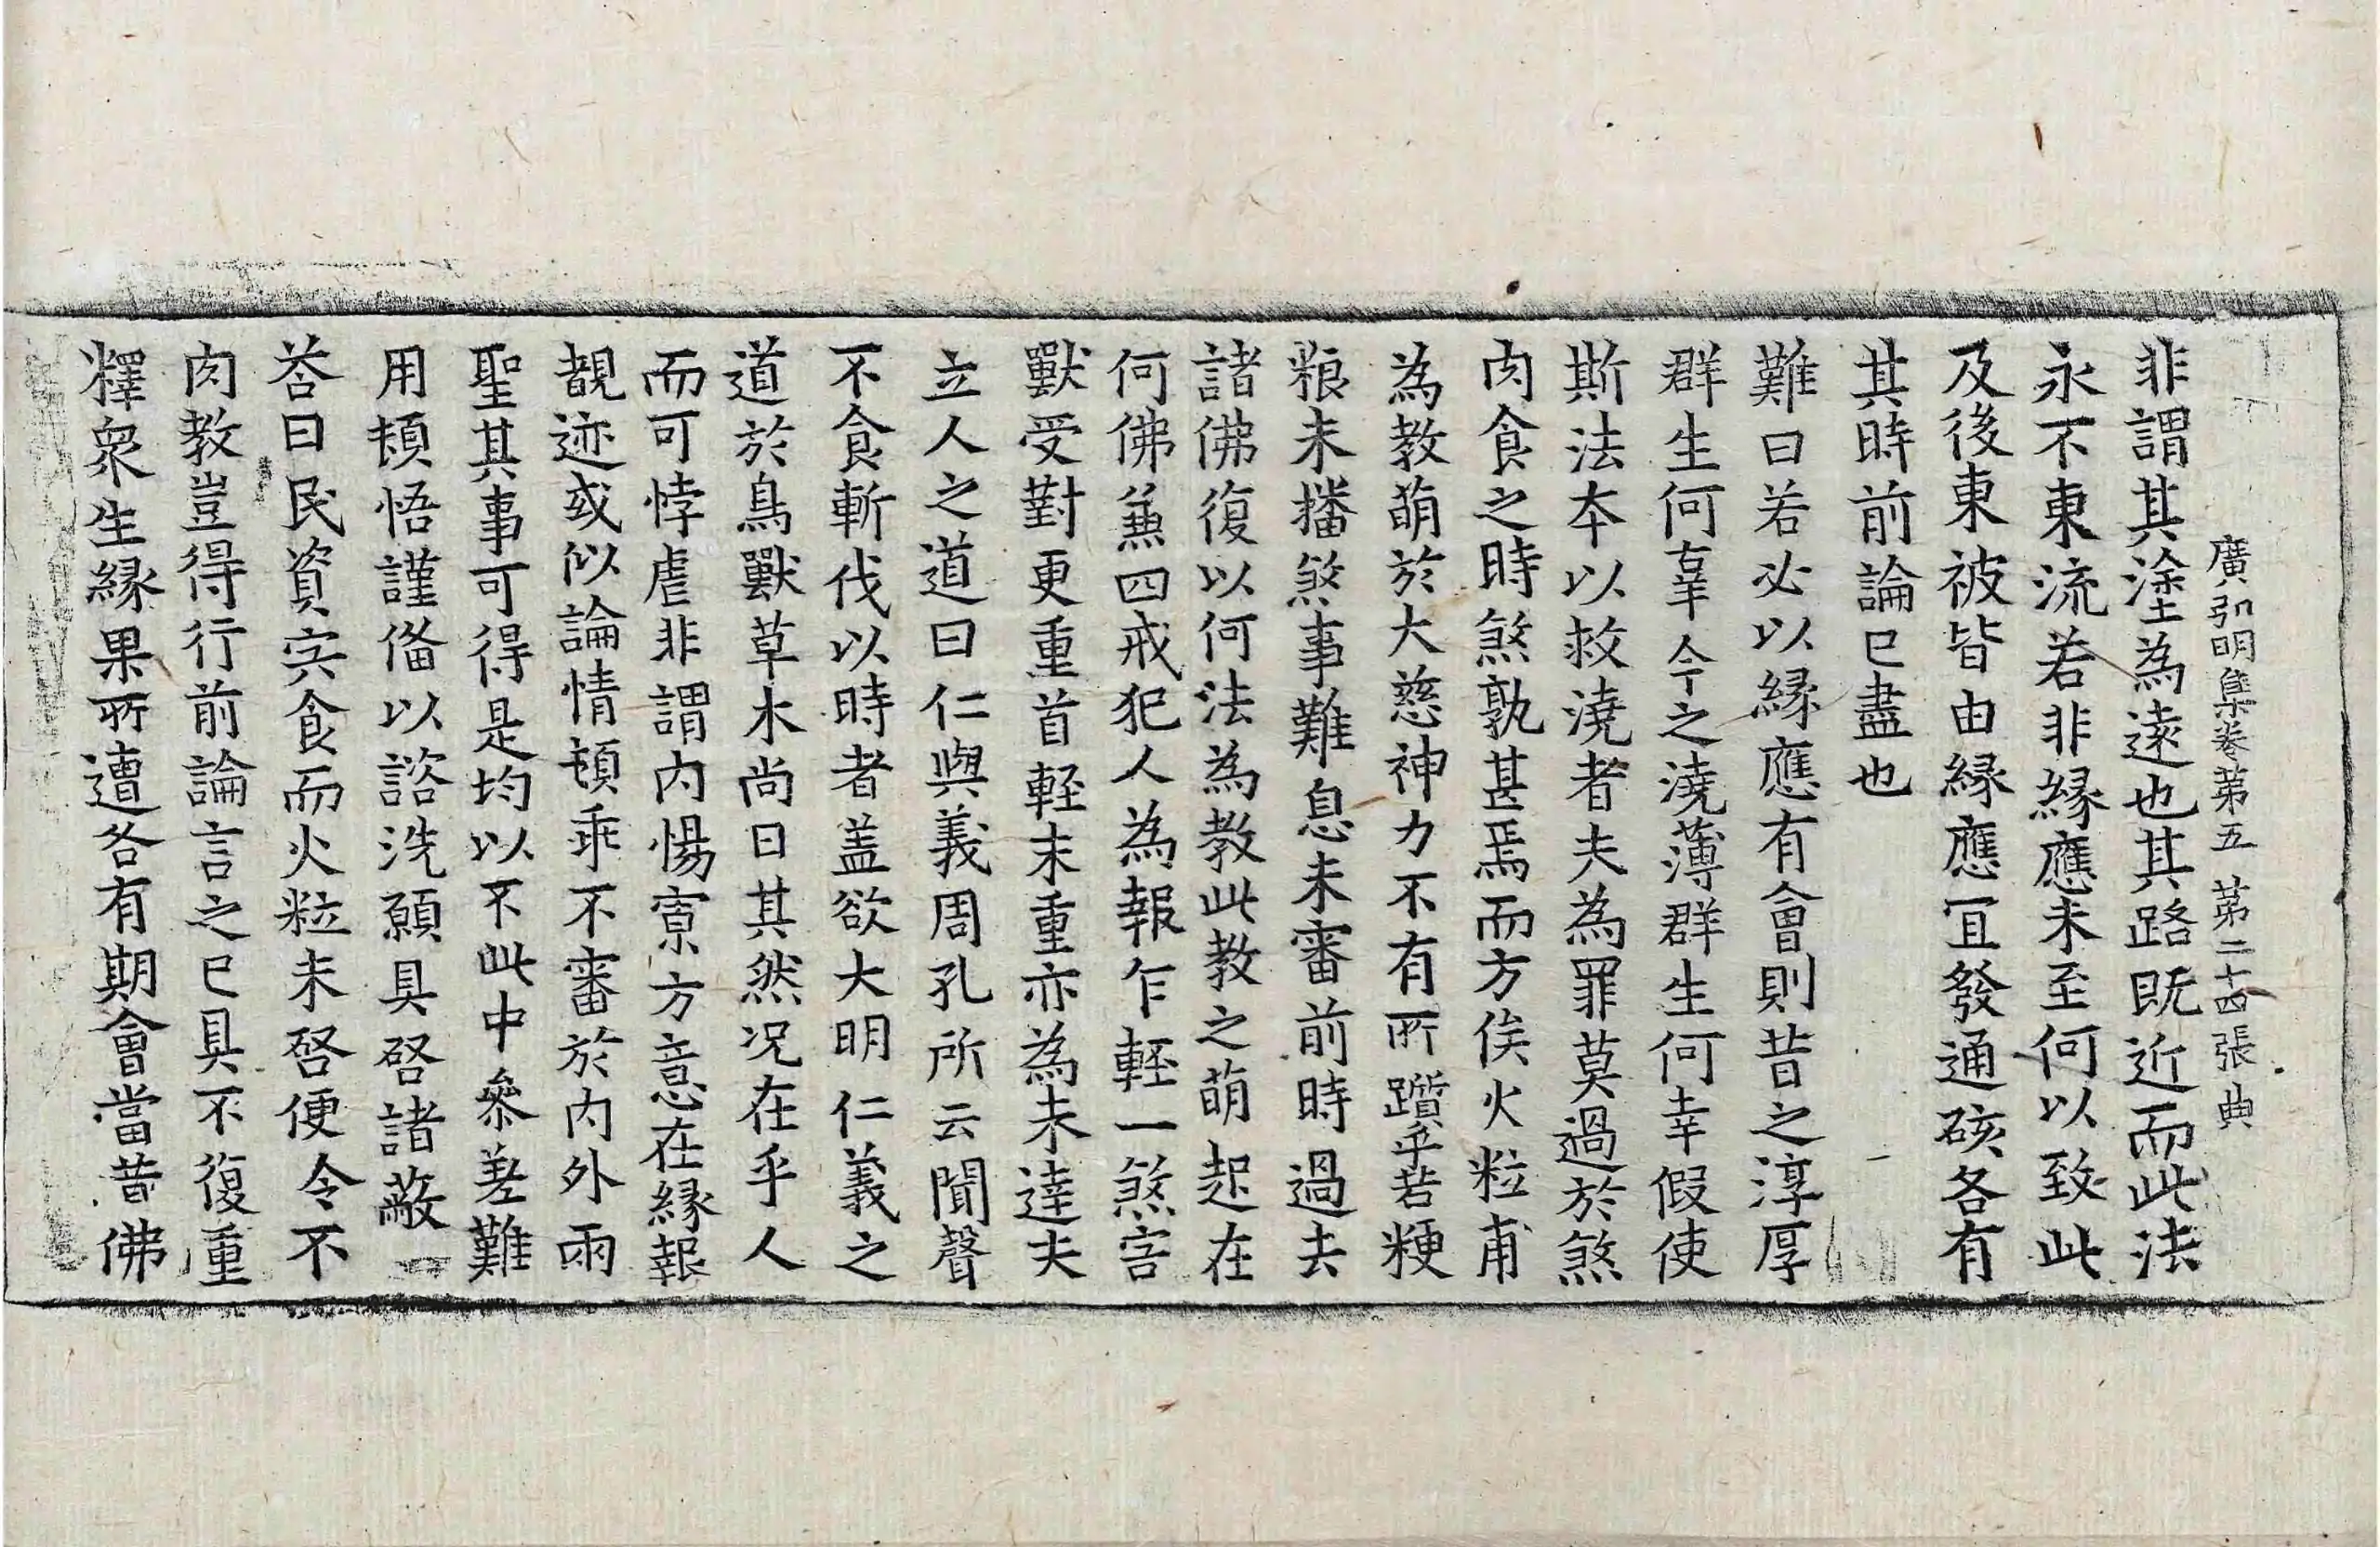 廣弘明集卷第五　第二十四張　典
非謂其塗為遠也其路既近而此法
永不東流若非縁應未至何以致此
及後東被皆由縁應冝發通硋各有
其時前論已盡也
難曰若必以縁應有會則昔之淳厚
群生何辜今之澆薄群生何幸假使
斯法本以救澆者夫為罪莫過於煞
肉食之時煞孰甚焉而方俟火粒甫
為教萌於大慈神力不有所躓乎若粳
粮未播煞事難息未審前時過去
諸佛復以何法為教此教之萌起在
何佛兼四戒犯人為報乍輕一煞害
獸受對更重首輕末重亦為未達夫
立人之道曰仁與義周孔所云聞聲
不食斬伐以時者盖欲大明仁義之
道於鳥獸草木尚曰其然况在乎人
而可悖虐非謂内惕寡方意在縁報
覩迹或似論情頓乖不審於内外兩
聖其事可得是均以不此中參差難
用頓悟謹俻以諮洗願具啓諸蔽
荅曰民資実食而火粒未啓便令不
肉教豈得行前論言之已具不復重
釋衆生縁果所遭各有期會當昔佛